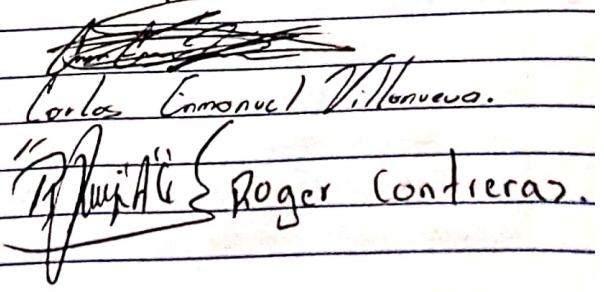 Carlos Enmanuel Villanueva.
Roger Contreras.